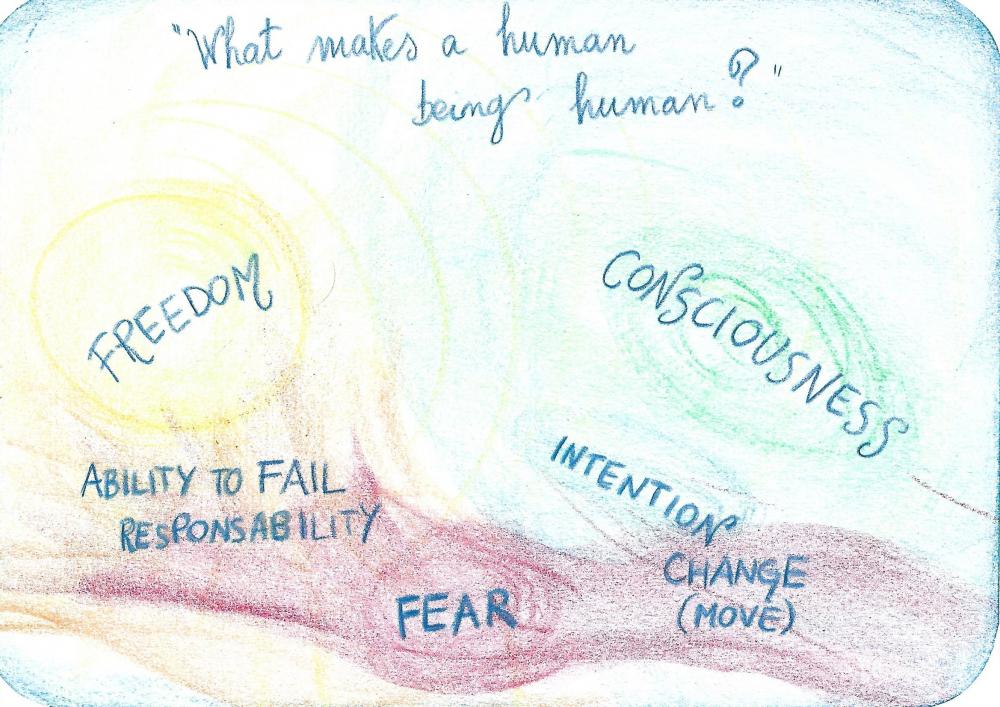 "What makes a human
being human?"
FREEDOM
CONSCIOUSNESS
ABILITY TO FAIL
RESPONSABILITY
INTENTION
CHANGE
(MOVE)
FEAR